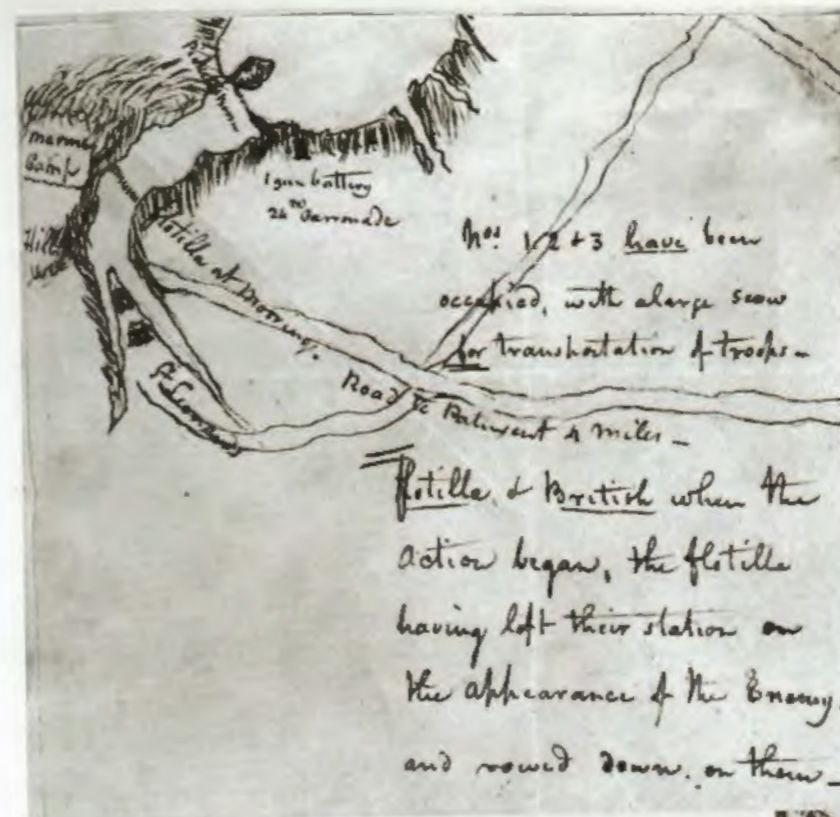 marine
Camp
1 gun battery
24 pd Carronade
flotilla at Mooring.
Nos 1 2 & 3 have been
occupied, with a large scow
for transportation of troops -
Road to Patuxent 4 miles -
flotilla, & British when the
action began, the flotilla
having left their station on
the appearance of the Enemy.
and rowed down. on them -